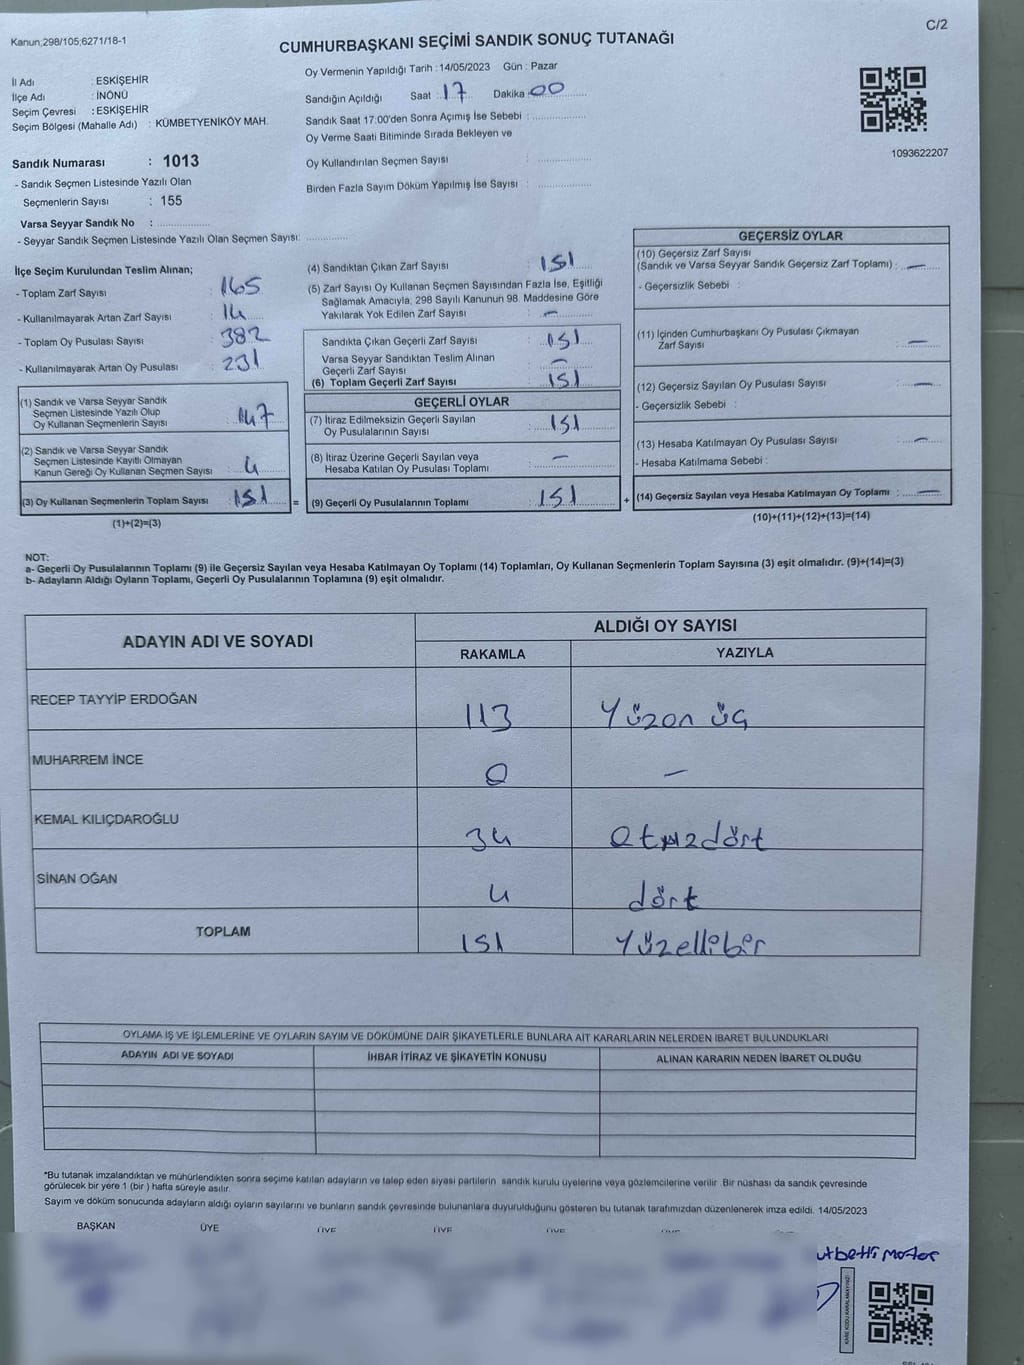 Kanun;298/105;6271/18-1
C/2
CUMHURBAŞKANI SEÇİMİ SANDIK SONUÇ TUTANAĞI
İl Adı : ESKİŞEHİR
İlçe Adı : İNÖNÜ
Seçim Çevresi : ESKİŞEHİR
Seçim Bölgesi (Mahalle Adı) : KÜMBETYENİKÖY MAH.
Sandık Numarası : 1013
- Sandık Seçmen Listesinde Yazılı Olan
Seçmenlerin Sayısı : 155
Varsa Seyyar Sandık No :
- Seyyar Sandık Seçmen Listesinde Yazılı Olan Seçmen Sayısı:
Oy Vermenin Yapıldığı Tarih :14/05/2023 Gün : Pazar
Sandığın Açıldığı Saat : 17 Dakika : 00
Sandık Saat 17:00'den Sonra Açımış İse Sebebi :
Oy Verme Saati Bitiminde Sırada Bekleyen ve
Oy Kullandırılan Seçmen Sayısı :
Birden Fazla Sayım Döküm Yapılmış İse Sayısı :
1093622207
İlçe Seçim Kurulundan Teslim Alınan;
- Toplam Zarf Sayısı : 165
- Kullanılmayarak Artan Zarf Sayısı : 14
- Toplam Oy Pusulası Sayısı : 382
- Kullanılmayarak Artan Oy Pusulası : 231
(1) Sandık ve Varsa Seyyar Sandık
Seçmen Listesinde Yazılı Olup
Oy Kullanan Seçmenlerin Sayısı : 147
(2) Sandık ve Varsa Seyyar Sandık
Seçmen Listesinde Kayıtlı Olmayan
Kanun Gereği Oy Kullanan Seçmen Sayısı : 4
(3) Oy Kullanan Seçmenlerin Toplam Sayısı : 151 =
(1)+(2)=(3)
(4) Sandıktan Çıkan Zarf Sayısı : 151
(5) Zarf Sayısı Oy Kullanan Seçmen Sayısından Fazla İse, Eşitliği
Sağlamak Amacıyla, 298 Sayılı Kanunun 98. Maddesine Göre
Yakılarak Yok Edilen Zarf Sayısı : —
Sandıkta Çıkan Geçerli Zarf Sayısı : 151
Varsa Seyyar Sandıktan Teslim Alınan
Geçerli Zarf Sayısı : —
(6) Toplam Geçerli Zarf Sayısı : 151
GEÇERLİ OYLAR
(7) İtiraz Edilmeksizin Geçerli Sayılan
Oy Pusulalarının Sayısı : 151
(8) İtiraz Üzerine Geçerli Sayılan veya
Hesaba Katılan Oy Pusulası Toplamı : —
(9) Geçerli Oy Pusulalarının Toplamı : 151 +
GEÇERSİZ OYLAR
(10) Geçersiz Zarf Sayısı
(Sandık ve Varsa Seyyar Sandık Geçersiz Zarf Toplamı) : —
- Geçersizlik Sebebi :
(11) İçinden Cumhurbaşkanı Oy Pusulası Çıkmayan
Zarf Sayısı : —
(12) Geçersiz Sayılan Oy Pusulası Sayısı : —
- Geçersizlik Sebebi :
(13) Hesaba Katılmayan Oy Pusulası Sayısı : —
- Hesaba Katılmama Sebebi :
(14) Geçersiz Sayılan veya Hesaba Katılmayan Oy Toplamı : —
(10)+(11)+(12)+(13)=(14)
NOT:
a- Geçerli Oy Pusulalarının Toplamı (9) ile Geçersiz Sayılan veya Hesaba Katılmayan Oy Toplamı (14) Toplamları, Oy Kullanan Seçmenlerin Toplam Sayısına (3) eşit olmalıdır. (9)+(14)=(3)
b- Adayların Aldığı Oyların Toplamı, Geçerli Oy Pusulalarının Toplamına (9) eşit olmalıdır.
ADAYIN ADI VE SOYADI
ALDIĞI OY SAYISI
RAKAMLA YAZIYLA
RECEP TAYYİP ERDOĞAN 113 Yüzon üç
MUHARREM İNCE 0 —
KEMAL KILIÇDAROĞLU 34 Otuzdört
SİNAN OĞAN 4 dört
TOPLAM 151 Yüzellibir
OYLAMA İŞ VE İŞLEMLERİNE VE OYLARIN SAYIM VE DÖKÜMÜNE DAİR ŞİKAYETLERLE BUNLARA AİT KARARLARIN NELERDEN İBARET BULUNDUKLARI
ADAYIN ADI VE SOYADI İHBAR İTİRAZ VE ŞİKAYETİN KONUSU ALINAN KARARIN NEDEN İBARET OLDUĞU
*Bu tutanak imzalandıktan ve mühürlendikten sonra seçime katılan adayların ve talep eden siyasi partilerin sandık kurulu üyelerine veya gözlemcilerine verilir. Bir nüshası da sandık çevresinde
görülecek bir yere 1 (bir ) hafta süreyle asılır.
Sayım ve döküm sonucunda adayların aldığı oyların sayılarını ve bunların sandık çevresinde bulunanlara duyurulduğunu gösteren bu tutanak tarafımızdan düzenlenerek imza edildi. 14/05/2023
BAŞKAN ÜYE ÜYE ÜYE ÜYE
KARE KODU KARALAMAYINIZ!